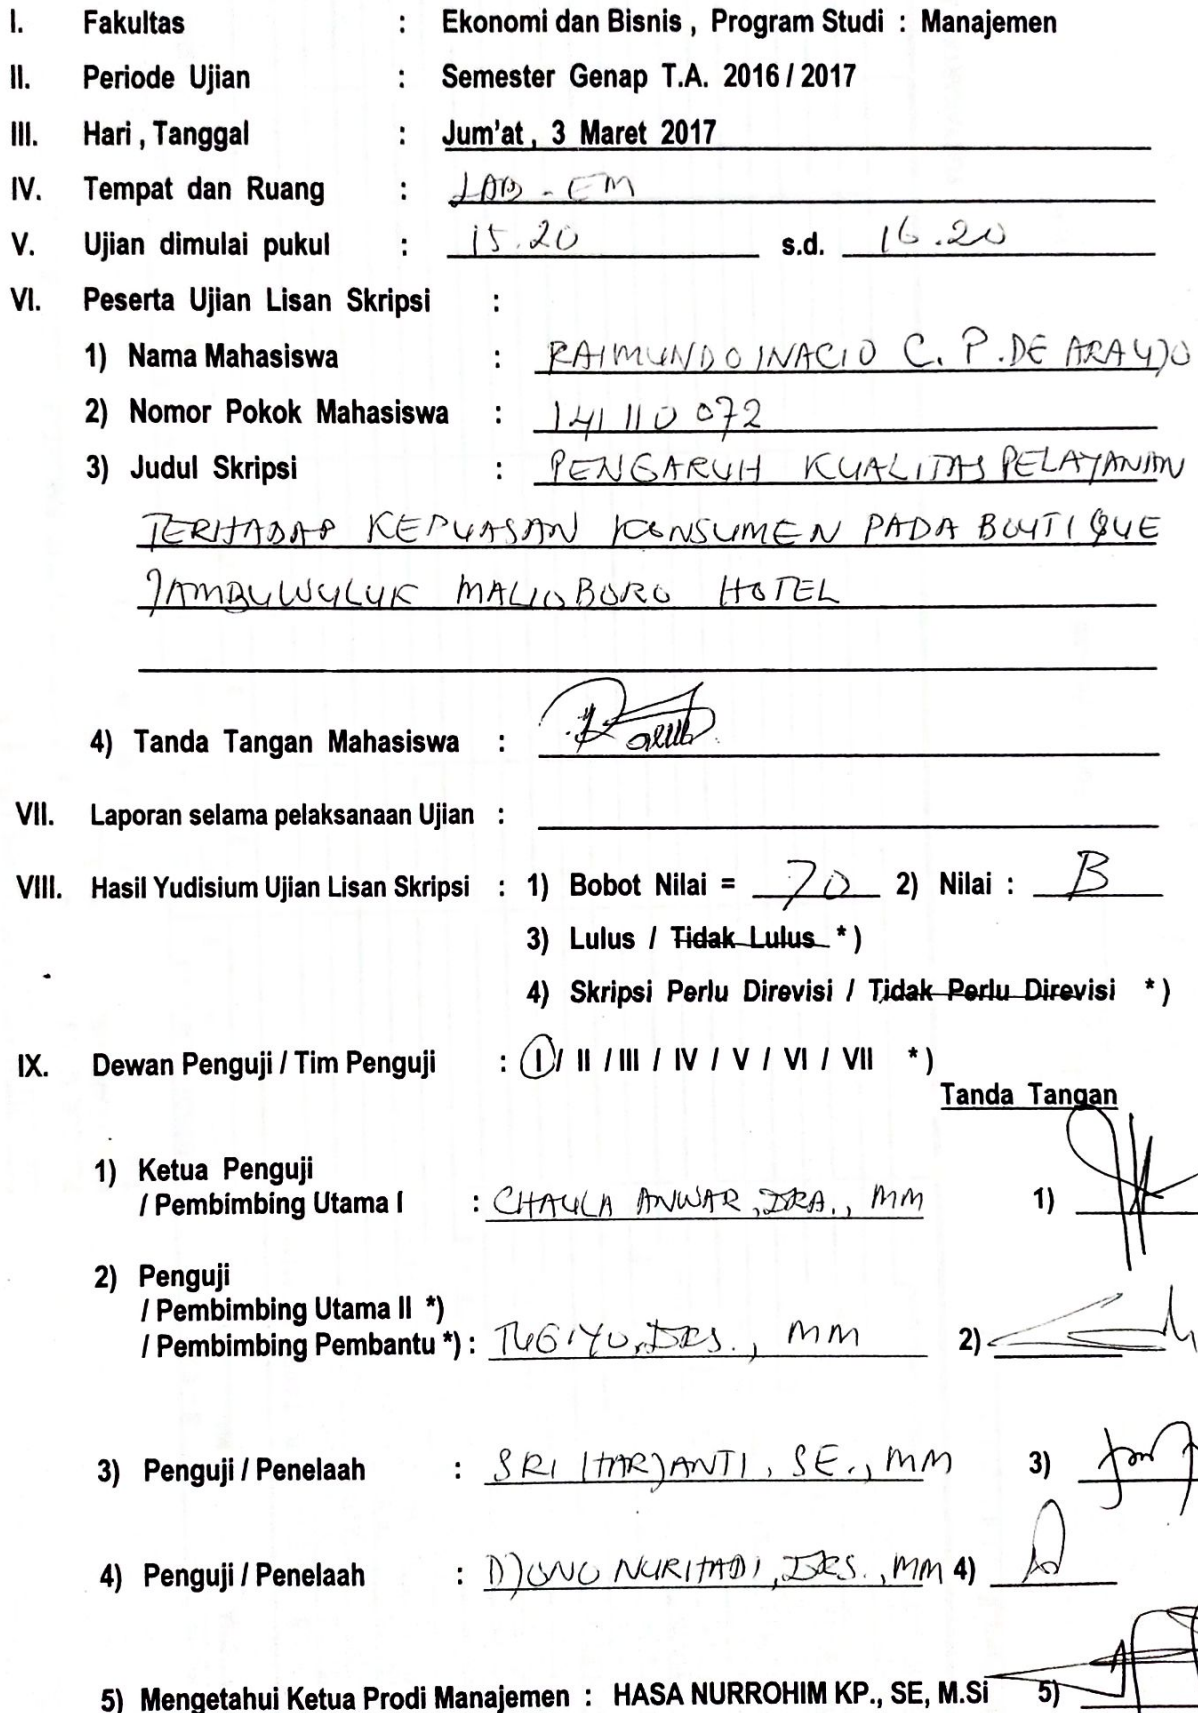 I. Fakultas : Ekonomi dan Bisnis , Program Studi : Manajemen
II. Periode Ujian : Semester Genap T.A. 2016 / 2017
III. Hari , Tanggal : Jum'at , 3 Maret 2017
IV. Tempat dan Ruang : LAB - EM
V. Ujian dimulai pukul : 15.20 s.d. 16.20
VI. Peserta Ujian Lisan Skripsi :
1) Nama Mahasiswa : RAIMUNDO INACIO C. P. DE ARAUJO
2) Nomor Pokok Mahasiswa : 141110072
3) Judul Skripsi : PENGARUH KUALITAS PELAYANAN
TERHADAP KEPUASAN KONSUMEN PADA BOUTIQUE
JAMBULUWULUK MALIOBORO HOTEL
4) Tanda Tangan Mahasiswa :
VII. Laporan selama pelaksanaan Ujian :
VIII. Hasil Yudisium Ujian Lisan Skripsi : 1) Bobot Nilai = 70 2) Nilai : B
3) Lulus / Tidak Lulus *)
4) Skripsi Perlu Direvisi / Tidak Perlu Direvisi *)
IX. Dewan Penguji / Tim Penguji : I / II / III / IV / V / VI / VII *)
Tanda Tangan
1) Ketua Penguji
/ Pembimbing Utama I : CHAULA ANWAR, DRA., MM 1)
2) Penguji
/ Pembimbing Utama II *)
/ Pembimbing Pembantu *) : TUGIYO, DRS., MM 2)
3) Penguji / Penelaah : SRI HARJANTI, SE., MM 3)
4) Penguji / Penelaah : DJONO NURHADI, DRS., MM 4)
5) Mengetahui Ketua Prodi Manajemen : HASA NURROHIM KP., SE, M.Si 5)